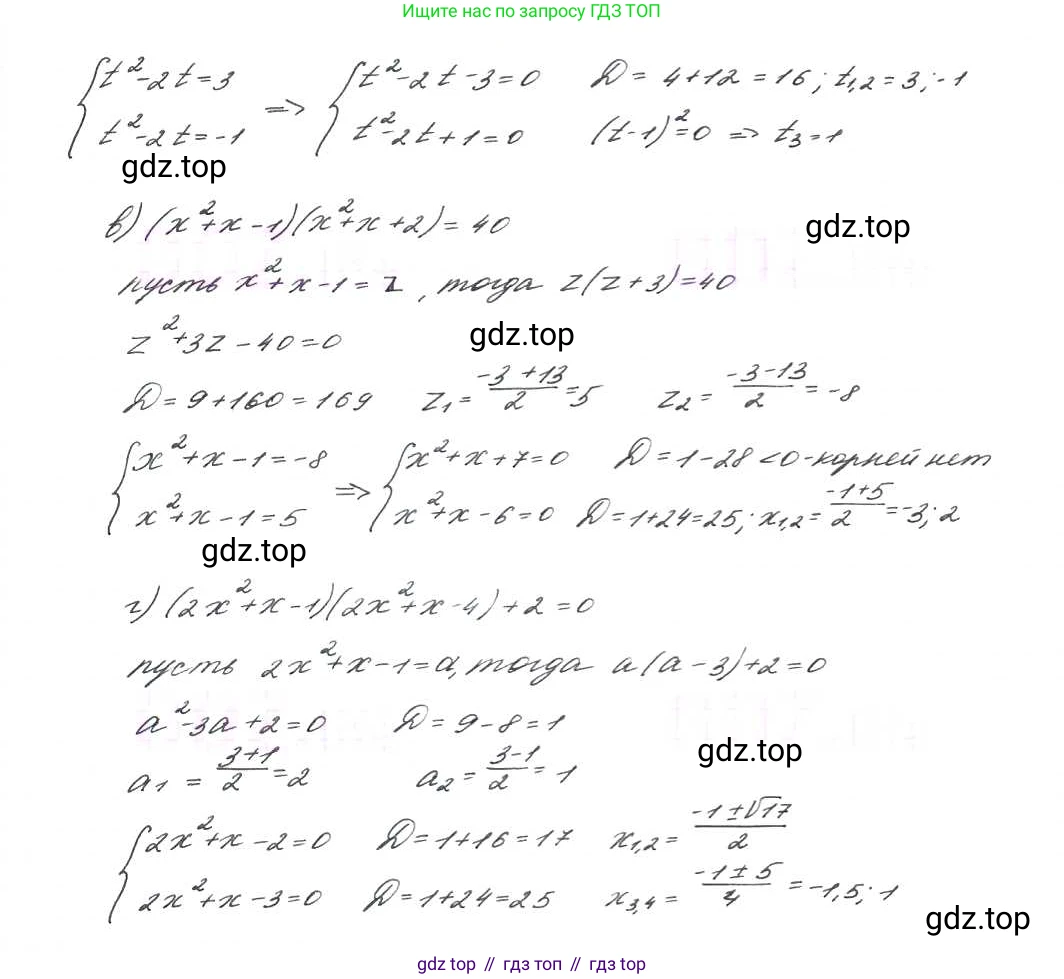 Ищите нас по запросу ГДЗ ТОП
{t²-2t=3 => {t²-2t-3=0 D=4+12=16; t₁,₂=3; -1
{t²-2t=-1 {t²-2t+1=0 (t-1)²=0 => t₃=1
gdz.top
в) (x²+x-1)(x²+x+2)=40
gdz.top
пусть x²+x-1=z, тогда z(z+3)=40
z²+3z-40=0
gdz.top
D=9+160=169 z₁=(-3+13)/2=5 z₂=(-3-13)/2=-8
{x²+x-1=-8 => {x²+x+7=0 D=1-28<0-корней нет
{x²+x-1=5 {x²+x-6=0 D=1+24=25; x₁,₂=(-1+5)/2=-3; 2
gdz.top
г) (2x²+x-1)(2x²+x-4)+2=0
пусть 2x²+x-1=a, тогда a(a-3)+2=0
a²-3a+2=0 D=9-8=1
gdz.top
a₁=(3+1)/2=2 a₂=(3-1)/2=1
{2x²+x-2=0 D=1+16=17 x₁,₂=(-1±√17)/2
{2x²+x-3=0 D=1+24=25 x₃,₄=(-1±5)/4=-1,5; 1
gdz.top
gdz top // гдз топ // gdz top